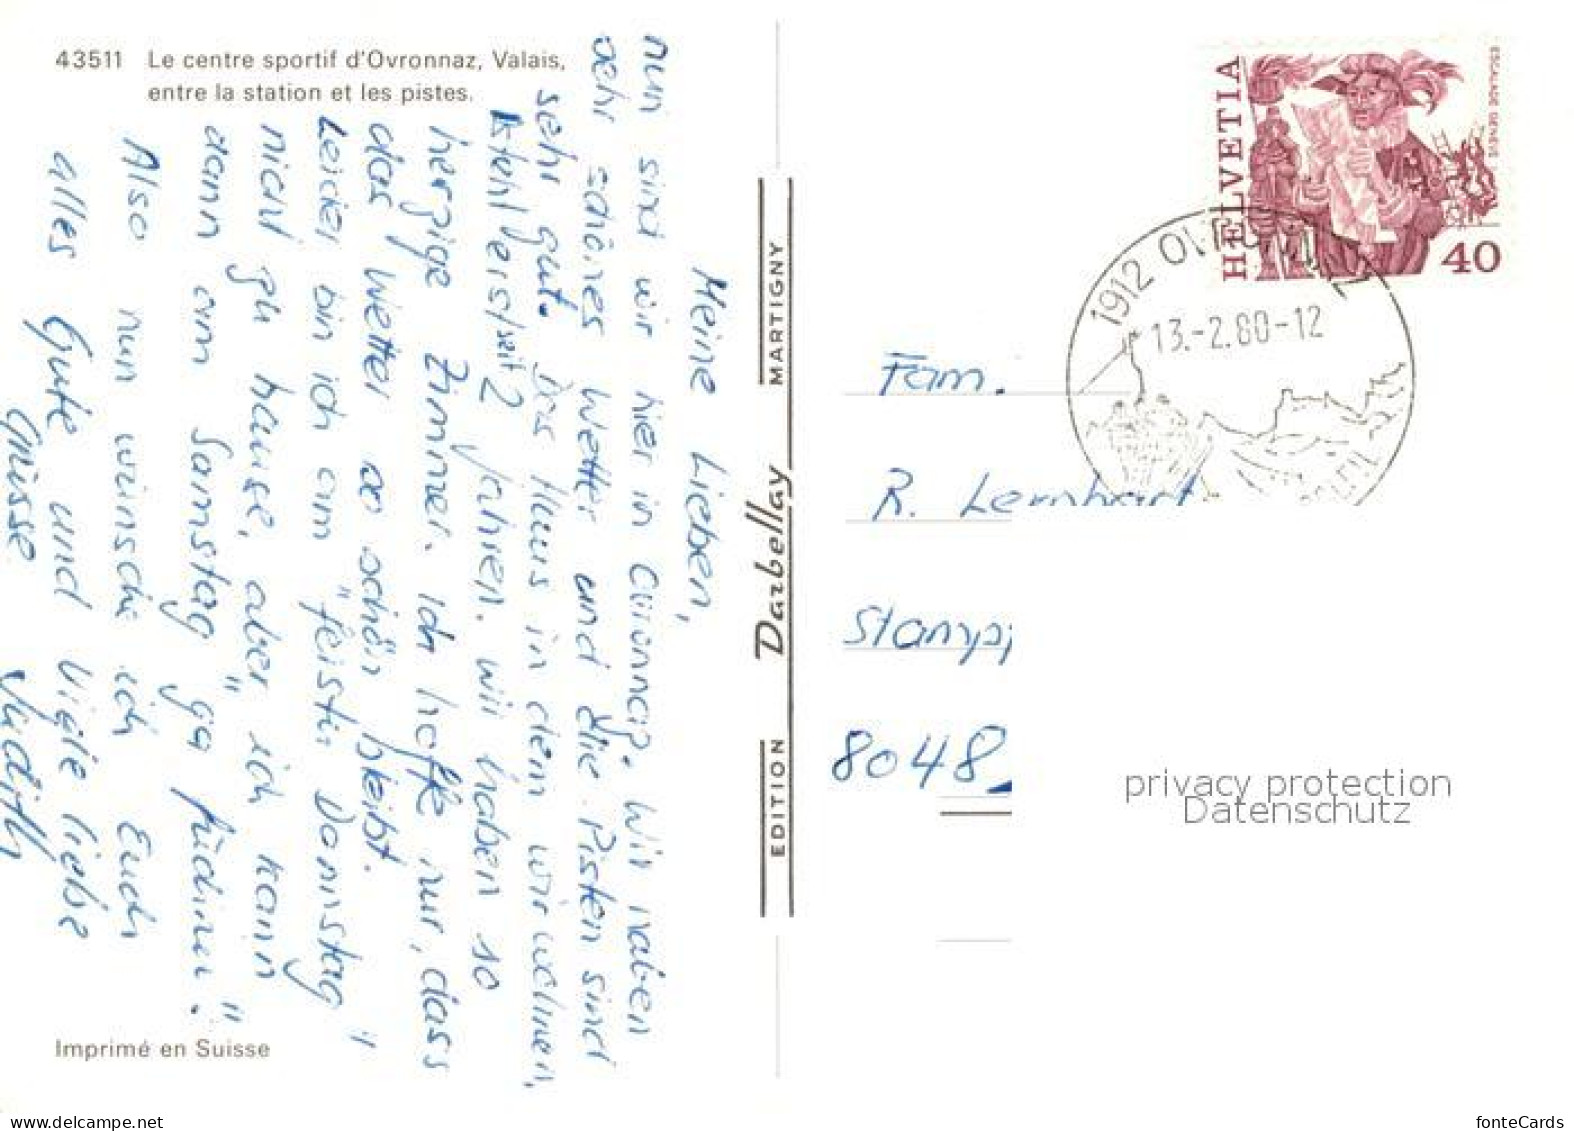 43511 Le centre sportif d'Ovronnaz, Valais,
entre la station et les pistes.
Meine Lieben,
nun sind wir hier in Ovronnaz. Wir haben
sehr schönes Wetter und die Pisten sind
sehr gut. Das Haus in dem wir wohnen,
steht erst seit 2 Jahren. Wir haben so
herzige Zimmer. Ich hoffe nur, dass
das Wetter so schön bleibt.
Leider bin ich am "feistu Donnstag"
nicht zu hause, aber ich kann
dann am Samstag "ga
Also nun wünsche ich Euch
alles Gute und viele liebe
Grüsse Judith
EDITION Darbellay MARTIGNY
Imprimé en Suisse
HELVETIA
ESCALADE GENEVE
40
1912 OVRONNAZ
13.-2.80-12
Fam.
R. Lernhart
Stampf
8048
privacy protection
Datenschutz
www.delcampe.net
fonteCards